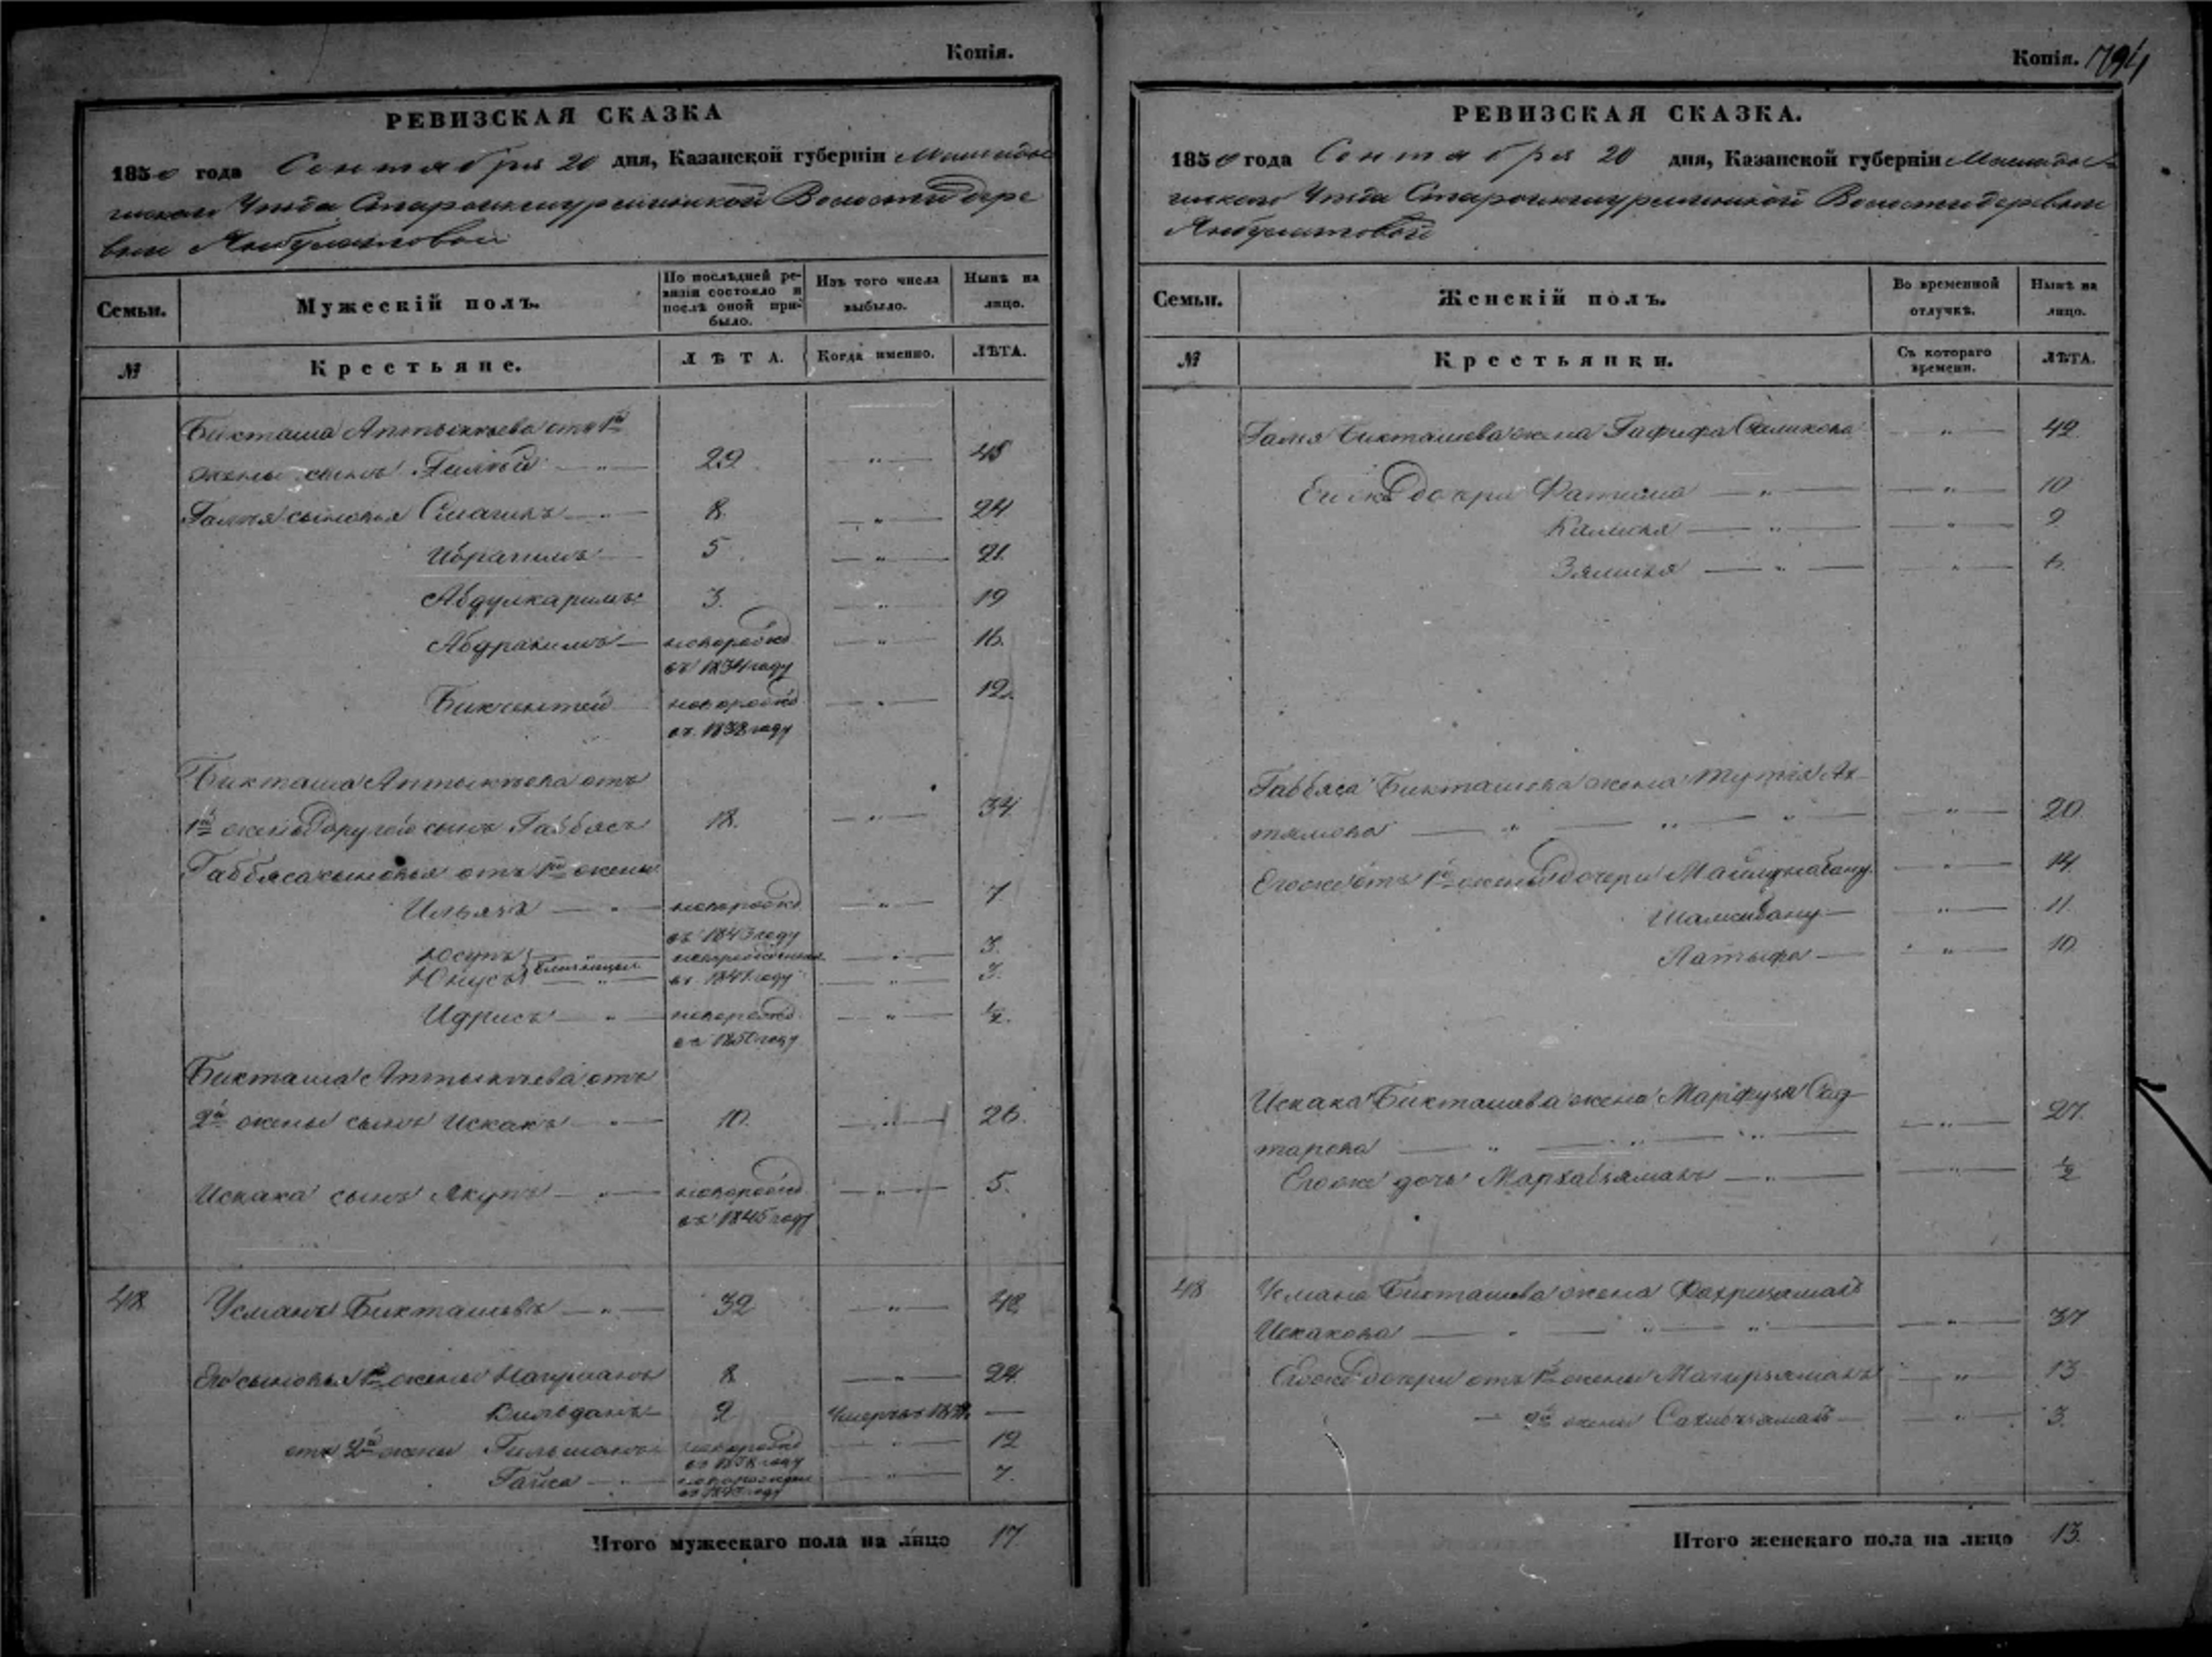 Копія.
РЕВИЗСКАЯ СКАЗКА
1850 года Сентября 20 дня, Казанской губерніи Мамадыш
скаго Уезда Волости дере
вни Янбулатовой
Семьи.
Мужескій полъ.
По послѣдней ре-
визіи состояло и
послѣ оной при-
было.
Изъ того числа
выбыло.
Нынѣ на
лицо.
№
Крестьяне.
ЛѢТА.
Когда именно.
ЛѢТА.
Бикташа Аптыкѣева отъ 1й
жены сынъ 29 " 45
Галѣя сыновья Смагилъ 8 " 24
Ибрагимъ 5 " 21
Абдулкаримъ 3 " 19
Абдрахимъ новорожд " 16
въ 1834 году
Бикчентей новорожд " 12
въ 1838 году
Бикташа Аптыкѣева отъ
1й жены другой сынъ Габбясъ 18 " 34
Габбяса сыновья отъ 1й жены
Ильясъ новорожд " 7
въ 1843 году
Юсупъ близнецы новорожденные " 3
Юнусъ въ 1847 году " 3
Идрисъ новорожд " ½
въ 1850 году
Бикташа Аптыкѣева отъ
2й жены сынъ Искакъ 10 " 26
Искака сынъ Якупъ новорожд " 5
въ 1845 году
48 Усманъ Бикташевъ 32 " 48
Его сыновья 1й жены Нагуманъ 8 " 24
Вильданъ 2 Умеръ въ
отъ 2й жены Гильманъ новорожд " 12
въ 1838 году
Гайса новорожден " 7
въ 1843 году
Итого мужескаго пола на лицо 17
Копія. 794
РЕВИЗСКАЯ СКАЗКА.
1850 года Сентября 20 дня, Казанской губерніи Мамадыш
скаго Уезда Волости деревни
Янбулатовой
Семьи.
Женскій полъ.
Во временной
отлучкѣ.
Нынѣ на
лицо.
№
Крестьянки.
Съ котораго
времени.
ЛѢТА.
Галѣя Бикташева жена Гафифа " 42
дочери Фатима " 10
Камиля " 9
Зямиля " 6
Габбяса Бикташева жена Ах
тямова " 20
Его же отъ 1й жены дочери " 14
Шамсибану " 11
Латыфа " 10
Искака Бикташева жена Марфуза Сад
тарова " 27
Его же дочь ½
48 Усмана Бикташева жена Фахризямалъ
Искакова " 37
Его же дочери отъ 1й жены " 13
2й жены " 3
Итого женскаго пола на лицо 13